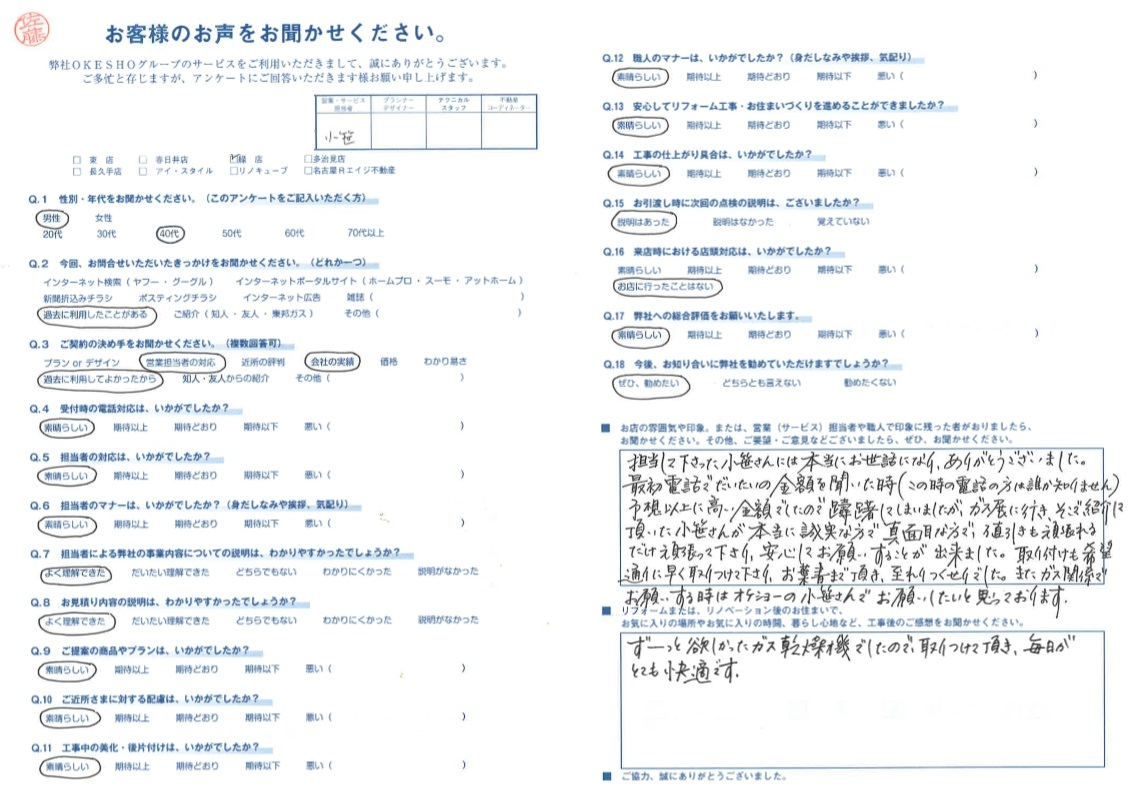 佐藤
お客様のお声をお聞かせください。
弊社OKESHOグループのサービスをご利用いただきまして、誠にありがとうございます。
ご多忙と存じますが、アンケートにご回答いただきます様お願い申し上げます。
営業・サービス担当者 プランナーデザイナー テクニカルスタッフ 不動産コーディネーター
小笹
□ 東 店 □ 春日井店 ☑緑 店 □多治見店
□ 長久手店 □ アイ・スタイル □リノキューブ □名古屋Rエイジ不動産
Q.1 性別・年代をお聞かせください。(このアンケートをご記入いただく方)
男性 女性
20代 30代 40代 50代 60代 70代以上
Q.2 今回、お問合せいただいたきっかけをお聞かせください。(どれか一つ)
インターネット検索(ヤフー・グーグル) インターネットポータルサイト(ホームプロ・スーモ・アットホーム)
新聞折込みチラシ ポスティングチラシ インターネット広告 雑誌( )
過去に利用したことがある ご紹介(知人・友人・東邦ガス) その他( )
Q.3 ご契約の決め手をお聞かせください。(複数回答可)
プラン or デザイン 営業担当者の対応 近所の評判 会社の実績 価格 わかり易さ
過去に利用してよかったから 知人・友人からの紹介 その他( )
Q.4 受付時の電話対応は、いかがでしたか?
素晴らしい 期待以上 期待どおり 期待以下 悪い( )
Q.5 担当者の対応は、いかがでしたか?
素晴らしい 期待以上 期待どおり 期待以下 悪い( )
Q.6 担当者のマナーは、いかがでしたか?(身だしなみや挨拶、気配り)
素晴らしい 期待以上 期待どおり 期待以下 悪い( )
Q.7 担当者による弊社の事業内容についての説明は、わかりやすかったでしょうか?
よく理解できた だいたい理解できた どちらでもない わかりにくかった 説明がなかった
Q.8 お見積り内容の説明は、わかりやすかったでしょうか?
よく理解できた だいたい理解できた どちらでもない わかりにくかった 説明がなかった
Q.9 ご提案の商品やプランは、いかがでしたか?
素晴らしい 期待以上 期待どおり 期待以下 悪い( )
Q.10 ご近所さまに対する配慮は、いかがでしたか?
素晴らしい 期待以上 期待どおり 期待以下 悪い( )
Q.11 工事中の美化・後片付けは、いかがでしたか?
素晴らしい 期待以上 期待どおり 期待以下 悪い( )
Q.12 職人のマナーは、いかがでしたか?(身だしなみや挨拶、気配り)
素晴らしい 期待以上 期待どおり 期待以下 悪い( )
Q.13 安心してリフォーム工事・お住まいづくりを進めることができましたか?
素晴らしい 期待以上 期待どおり 期待以下 悪い( )
Q.14 工事の仕上がり具合は、いかがでしたか?
素晴らしい 期待以上 期待どおり 期待以下 悪い( )
Q.15 お引渡し時に次回の点検の説明は、ございましたか?
説明はあった 説明はなかった 覚えていない
Q.16 来店時における店頭対応は、いかがでしたか?
素晴らしい 期待以上 期待どおり 期待以下 悪い( )
お店に行ったことはない
Q.17 弊社への総合評価をお願いいたします。
素晴らしい 期待以上 期待どおり 期待以下 悪い( )
Q.18 今後、お知り合いに弊社を勧めていただけますでしょうか?
ぜひ、勧めたい どちらとも言えない 勧めたくない
■ お店の雰囲気や印象。または、営業(サービス)担当者や職人で印象に残った者がおりましたら、
お聞かせください。その他、ご要望・ご意見などございましたら、ぜひ、お聞かせください。
担当して下さった小笹さんには本当にお世話になり、ありがとうございました。
最初電話でだいたいの金額を聞いた時(この時の電話の方は誰か知りません)
予想以上に高い金額でしたので躊躇してしまいましたが、ガス展に行き、そこで紹介して
頂いた小笹さんが本当に誠実な方で真面目な方で、値引きも頑張れる
だけ頑張って下さり、安心してお願いすることが出来ました。取り付けも希望
通りに早く取りつけて下さり、お葉書まで頂き、至れりつくせりでした。またガス関係で
お願いする時はオケショーの小笹さんでお願いしたいと思っております。
■ リフォームまたは、リノベーション後のお住まいで、
お気に入りの場所やお気に入りの時間、暮らし心地など、工事後のご感想をお聞かせください。
ずーっと欲しかったガス乾燥機でしたので、取りつけて頂き、毎日が
とても快適です。
■ ご協力、誠にありがとうございました。